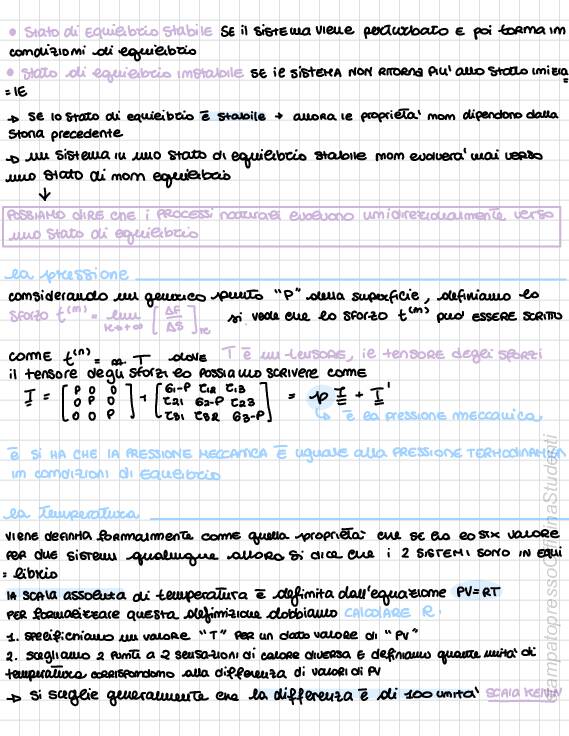 • Stato di equilibrio stabile se il sistema viene perturbato e poi torna in
condizioni di equilibrio
• Stato di equilibrio instabile se il sistema non ritorna più allo stato inizia
= le
→ se lo stato di equilibrio è stabile → allora le proprietà non dipendono dalla
storia precedente
→ un sistema in uno stato di equilibrio stabile non evolverà mai verso
uno stato di non equilibrio
↓
POSSIAMO DIRE che i PROCESSI naturali evolvono unidirezionalmente verso
uno stato di equilibrio
la pressione
considerando un generico punto "P" della superficie, definiamo lo
sforzo t⁽ⁿ⁾ = lim [ΔF/ΔS] si vede che lo sforzo t⁽ⁿ⁾ può essere scritto
come t⁽ⁿ⁾ = n T dove T è un tensore, il tensore degli sforzi
il tensore degli sforzi lo possiamo scrivere come
T = [P 0 0; 0 P 0; 0 0 P] + [σ1-P τ12 τ13; τ21 σ2-P τ23; τ31 τ32 σ3-P] = p I + T'
↳ è la pressione meccanica
è si ha che la pressione meccanica è uguale alla pressione termodinamica
in condizioni di equilibrio
la temperatura
viene definita formalmente come quella proprietà che se ha lo stx valore
per due sistemi qualunque allora si dice che i 2 sistemi sono in equi
= librio
la scala assoluta di temperatura è definita dall'equazione PV=RT
per formalizzare questa definizione dobbiamo calcolare R:
1. specifichiamo un valore "T" per un dato valore di "PV"
2. scegliamo 2 punti a 2 sensazioni di calore diversa e definiamo quante unità di
temperatura corrispondono alla differenza di valori di PV
→ si sceglie generalmente che la differenza è di 100 unità SCALA KELVIN